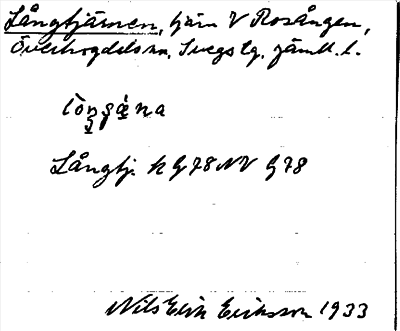 Långtjärnen, tjärn V Rosången,
Överhogdals sn, Svegs tg. Jämtl. l.
Långtj. k G78 NV G78
Nils Erik Eriksson 1933